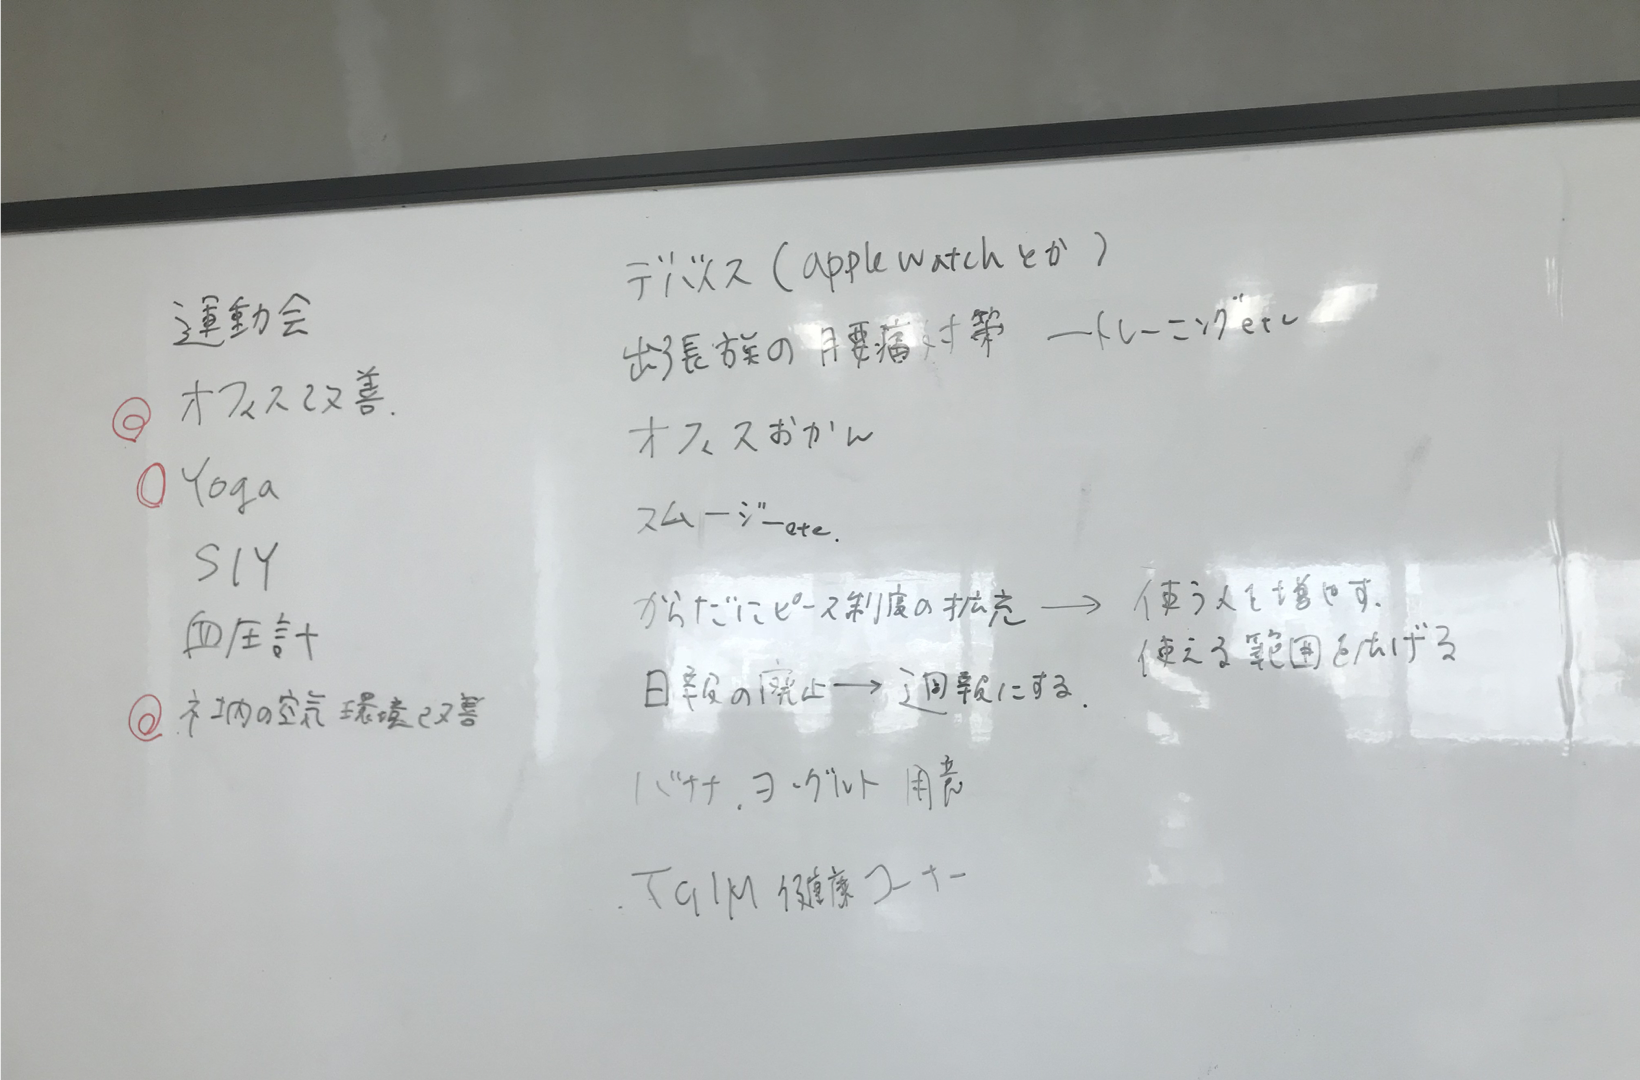 運動会
◎ オフィス改善.
○ Yoga
SIY
血圧計
◎ 社内の空気環境改善
デバイス (apple watchとか)
出張族の腰痛対策 ートレーニングetc
オフィスおかん
スムージーetc.
からだにピース制度の拡充 → 使う人を増やす.
使える範囲を広げる
日報の廃止→週報にする.
バナナ.ヨーグルト 用意
健康コーナー